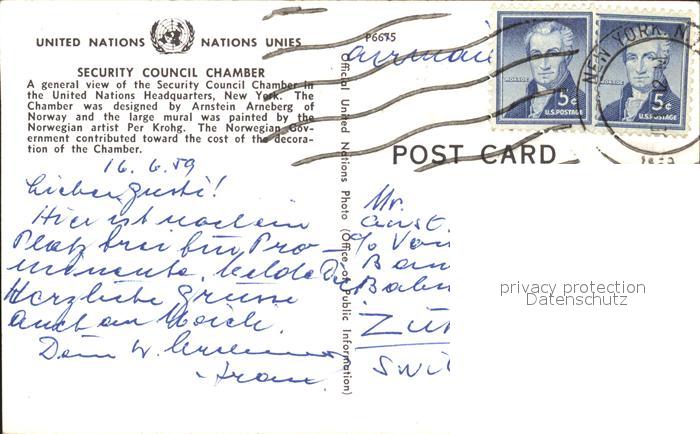 UNITED NATIONS NATIONS UNIES
SECURITY COUNCIL CHAMBER
A general view of the Security Council Chamber in
the United Nations Headquarters, New York. The
Chamber was designed by Arnstein Arneberg of
Norway and the large mural was painted by the
Norwegian artist Per Krohg. The Norwegian Gov-
ernment contributed toward the cost of the decora-
tion of the Chamber.
16. 6. 59
Lieber Gusti!
Hier ist noch ein
Platz frei für Pro-
minente. Melde Dich
Herzliche Grüsse
auch an
Dein
P6675
airmail
Official United Nations Photo (Office of Public Information)
MONROE
5¢
U.S. POSTAGE
MONROE
5¢
U.S. POSTAGE
NEW YORK, N.
POST CARD
Mr.
c/o
Zür
Swi
privacy protection
Datenschutz